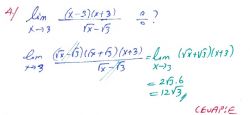 4/ lim x→3 (x-3)(x+3) / √x-√3 0/0 ?
lim x→3 (√x-√3)(√x+√3)(x+3) / √x-√3 = lim x→3 (√x+√3)(x+3)
= 2√3.6
= 12√3
CEVAPIE